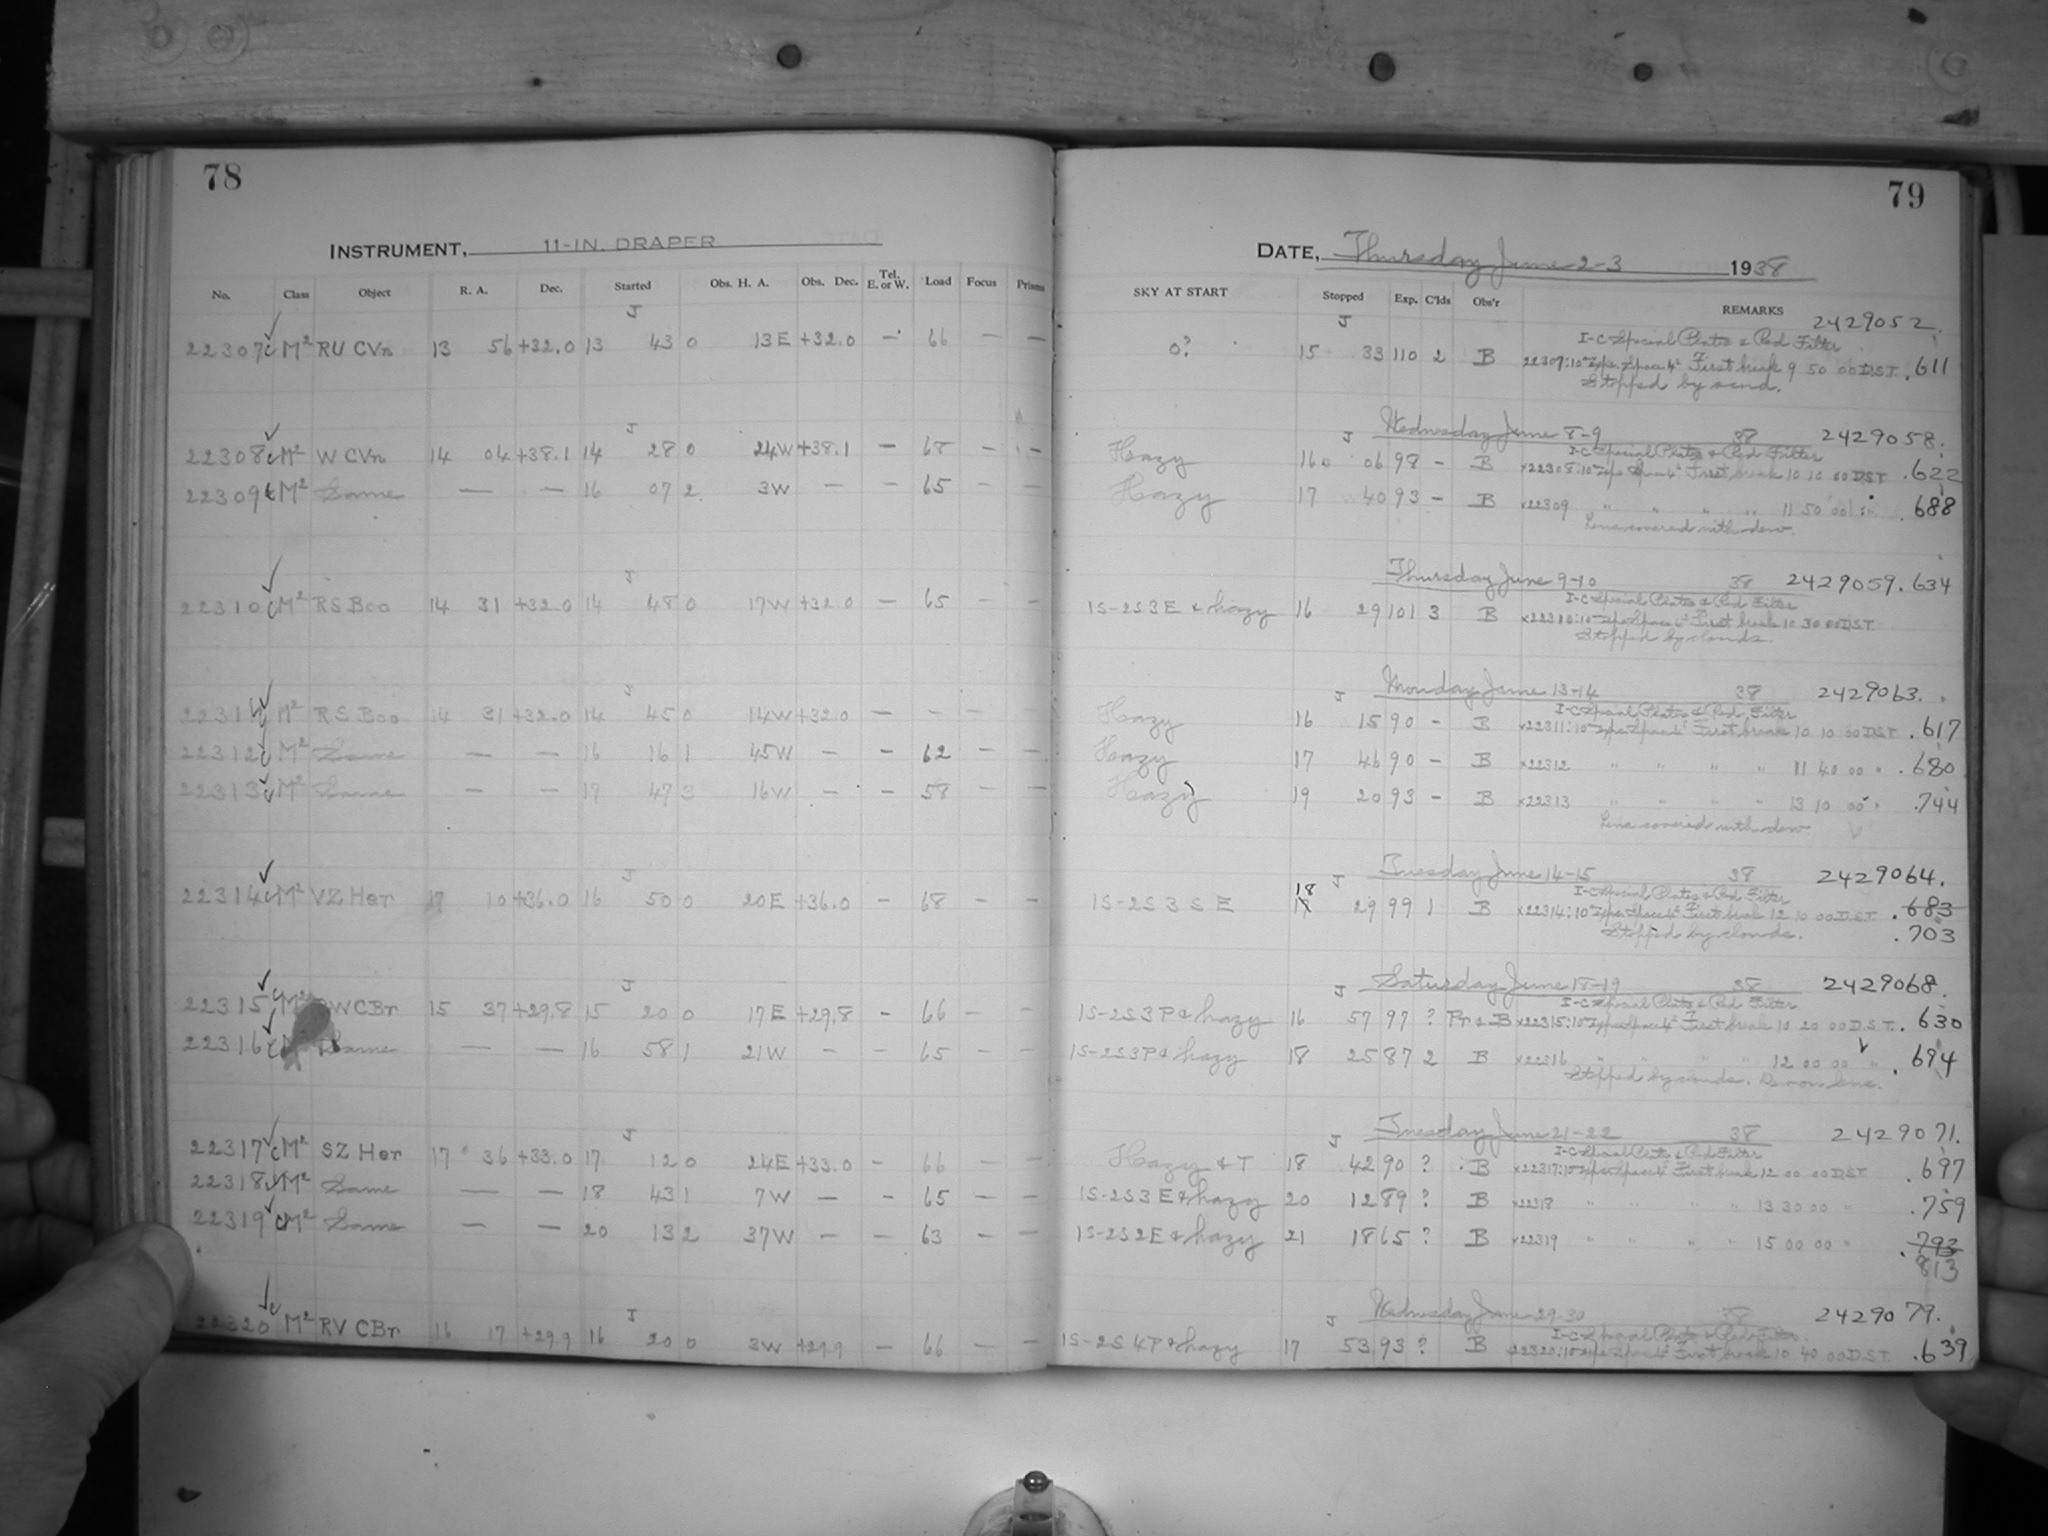 78
INSTRUMENT, 11-IN. DRAPER
No. Class Object R. A. Dec. Started Obs. H. A. Obs. Dec. Tel. E. or W. Load Focus Prisms
J
22307 M² RU CVn 13 56 +32.0 13 43 0 13 E +32.0 — 66 — —
J
22308 M² W CVn 14 04 +38.1 14 28 0 24W +38.1 — 68 — —
22309 M² Same — — 16 07 2 3W — — 65 — —
J
22310 M² RS Boo 14 31 +32.0 14 48 0 17W +32.0 — 65 — —
J
22311 M² RS Boo 14 31 +32.0 14 45 0 14W +32.0 — — — —
22312 M² Same — — 16 16 1 45W — — 62 — —
22313 M² Same — — 17 47 3 16W — — 58 — —
J
22314 M² VZ Her 17 10 +36.0 16 50 0 20E +36.0 — 68 — —
J
22315 M² WCBr 15 37 +29.8 15 20 0 17E +29.8 — 66 — —
22316 Same — — 16 58 1 21W — — 65 — —
J
22317 M² SZ Her 17 36 +33.0 17 12 0 24E +33.0 — 66 — —
22318 M² Same — — 18 43 1 7W — — 65 — —
22319 M² Same — — 20 13 2 37W — — 63 — —
J
22320 M² RV CBr 16 17 +29.9 16 20 0 3W +29.9 — 66 — —
79
DATE, Thursday June 2-3 1938
SKY AT START Stopped Exp. C'lds Obs'r REMARKS
J 2429052.
I-C Special Plates & Red Filter
0? 15 33 110 2 B 22307: First break 9 50 00 D.S.T. .611
Stopped by
J Wednesday June 8-9 38 2429058.
I-C Special Plates & Red Filter
Hazy 16 06 98 — B x22308: First break 10 10 00 D.S.T. .622
Hazy 17 40 93 — B x22309 " " " " 11 50 00 " .688
Lens covered with dew.
Thursday June 9-10 38 2429059.634
I-C Special Plates & Red Filter
1S-2S3E & hazy 16 29 101 3 B x22310: First break 10 30 00 D.S.T.
Stopped by clouds.
J Monday June 13-14 38 2429063.
I-C Special Plates & Red Filter
Hazy 16 15 90 — B x22311: First break 10 10 00 D.S.T. .617
Hazy 17 46 90 — B x22312 " " " " 11 40 00 " .680
Hazy 19 20 93 — B x22313 " " " " 13 10 00 " .744
Lens covered with dew
J Tuesday June 14-15 38 2429064.
18 I-C Special Plates & Red Filter
1S-2S 3 S E 29 99 1 B x22314: First break 12 10 00 D.S.T. .683
Stopped by clouds. .703
J Saturday June 18-19 38 2429068.
I-C Special Plates & Red Filter
1S-2S3P & hazy 16 57 97 ? Pr & B x22315: First break 10 20 00 D.S.T. .630
1S-2S3P & hazy 18 25 87 2 B x22316 " " " " 12 00 00 " .694
Stopped by clouds. Dew on lens.
J Tuesday June 21-22 38 2429071.
I-C Special Plates & Red Filter
Hazy & T 18 42 90 ? B x22317: First break 12 00 00 D.S.T. .697
1S-2S3E & hazy 20 12 89 ? B x22318 " " " " 13 30 00 " .759
1S-2S2E & hazy 21 18 65 ? B x22319 " " " " 15 00 00 " .793
813
J Wednesday June 29-30 38 2429079.
I-C Special Plates & Red Filter
1S-2S 4P & hazy 17 53 93 ? B 22320: First break 10 40 00 D.S.T. .639